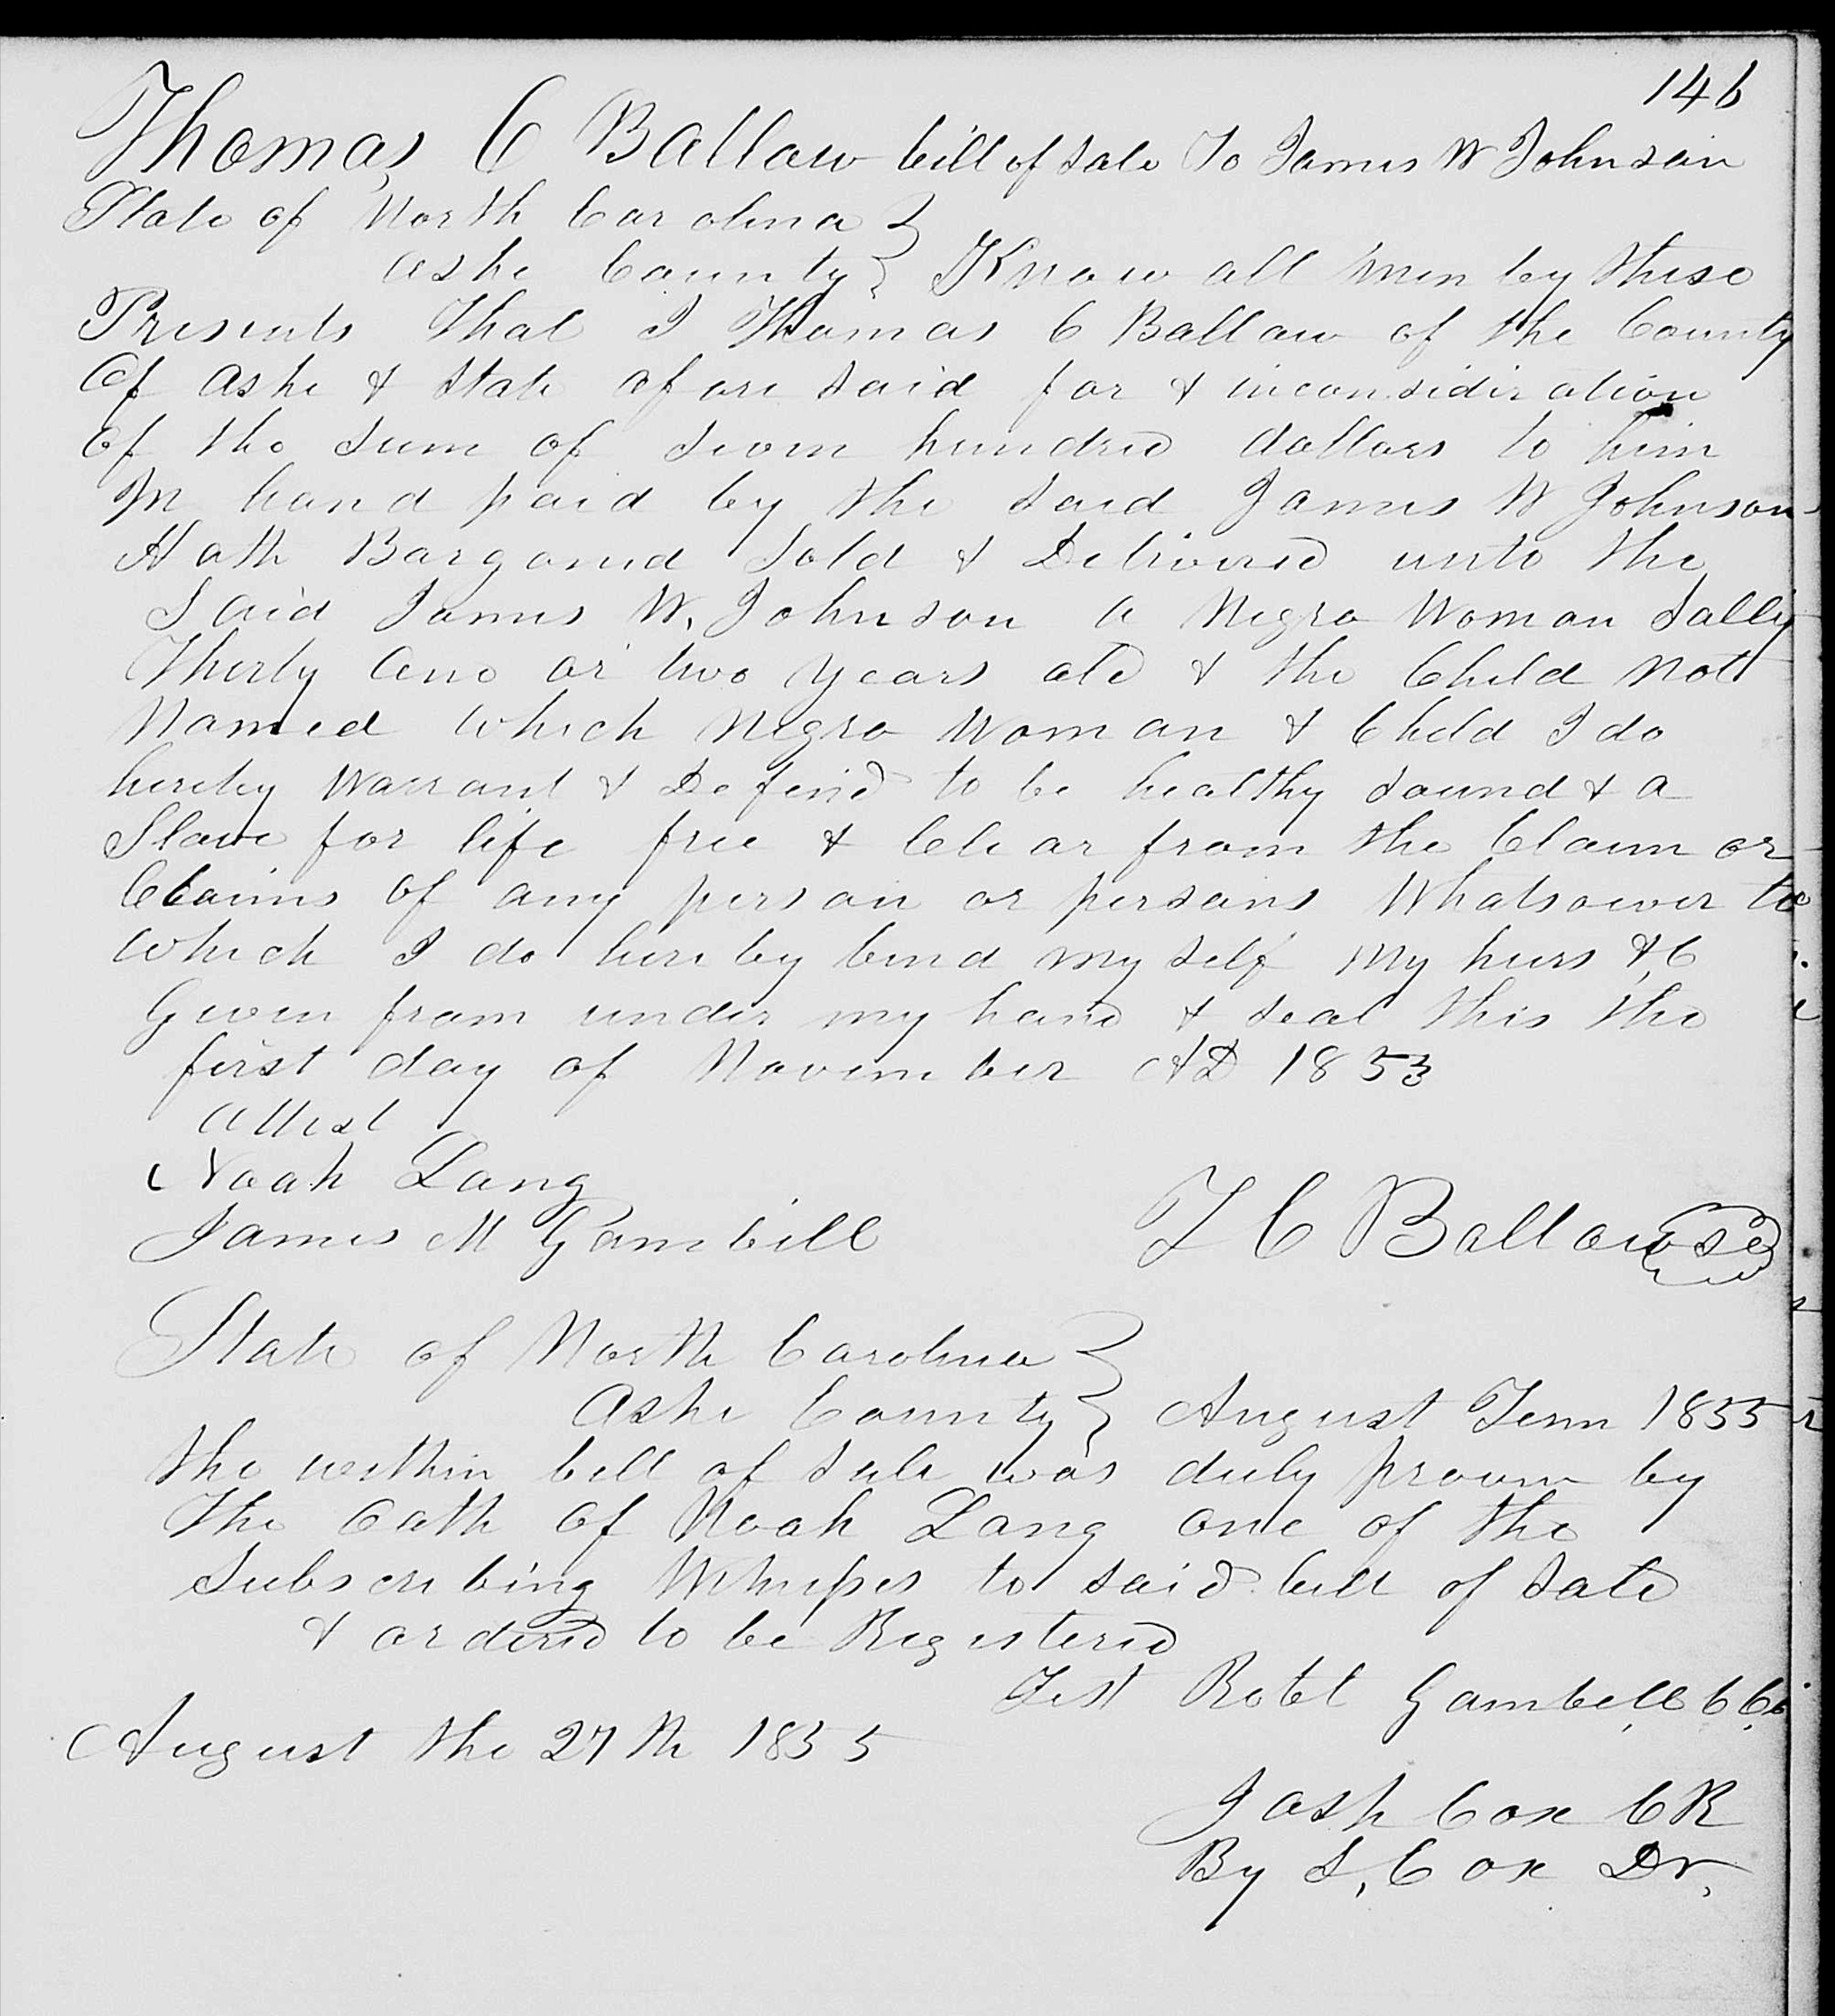 146
Thomas C Ballaw bill of Sale To James W Johnson
State of North Carolina }
Ashe County } Know all men by these
Presents That I Thomas C Ballaw of the County
Of Ashe & State afore said for & inconsideration
of the Sum of Seven hundred dollars to him
In hand paid by the Said James W Johnson
Hath Barganed Sold & Delivered unto the
Said James W. Johnson a Negro Woman Sally
Therty One or two years old & the Child not
Named Which Negro Woman & Child I do
hereby Warrant & Defend to be healthy Sound & a
Slave for life free & Clear from the Claim or
Claims of any person or persons Whatsoever to
Which I do hereby bind my self my heirs &C
Given from under my hand & Seal this the
first day of November AD 1853
Attest
Noah Lang
James M Gambill T C Ballaw Se
State of North Carolina }
Ashe County } August Term 1855
the within bill of Sale was duly proven by
The Oath of Noah Lang one of the
Subscribing Witnesses to said bill of Sale
& ordered to be Registered
Test Robt Gambill CC
August the 27th 1855
Josh Cox CR
By S, Cox Dr,